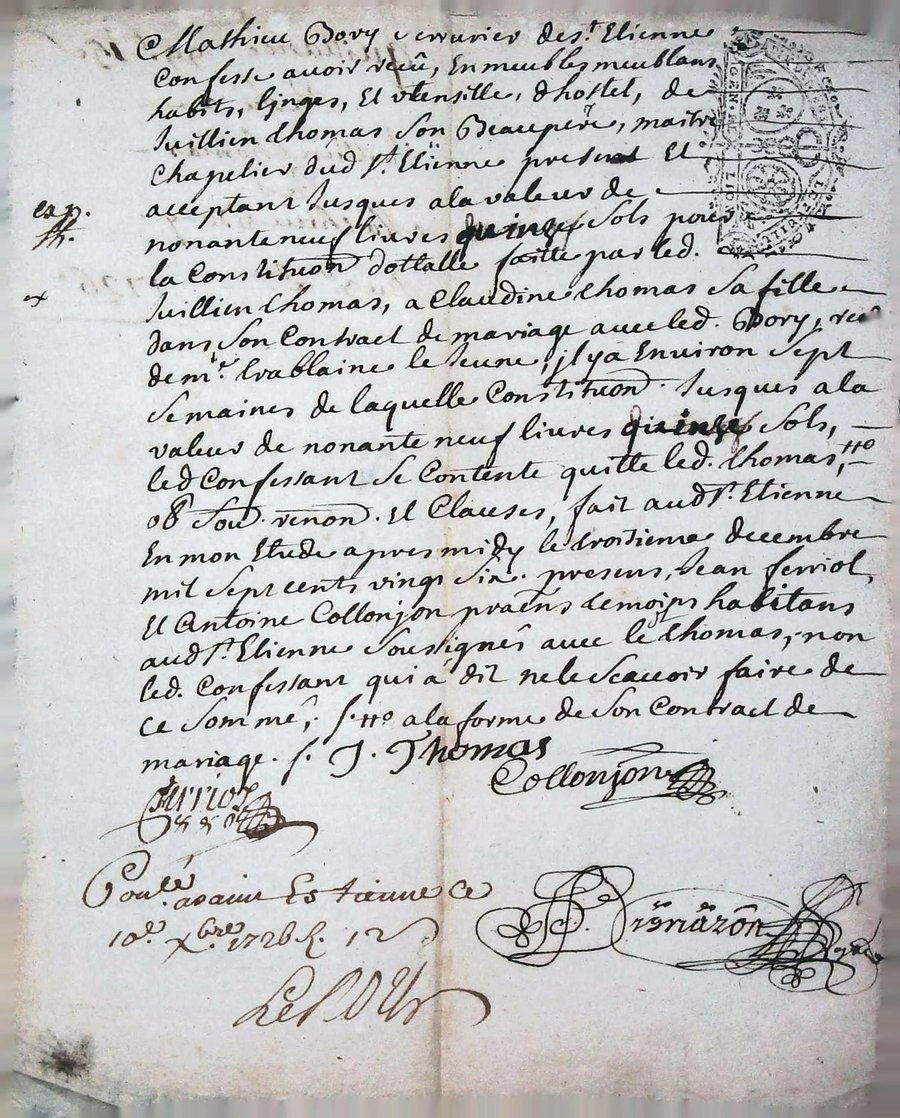 Mathieu Bory serrurier de st. Etienne
Confesse avoir reçû, En meubles meublans
habits, linges, Et utensille, d'hostel, de
Jullien thomas son Beaupere, maitre
chapelier dud st. Etienne present Et
acceptant Jusques ala valeur de
exp.
nonante neuf livres quinze sols pour
la Constituon dottalle faitte par led.
Jullien thomas, a Claudine thomas sa fille
dans son Contract de mariage avec led. Bory, reçu
de mr. trablaine le Jeune, jl y a Environ sept
semaines de laquelle Constituon. Jusques ala
valeur de nonante neuf livres quinze sols,
led Confessant se Contente quitte led. thomas,
ob. soū. renon. Et Clauses, fait aud st. Etienne
En mon Etude apres midy le troisieme decembre
mil sept cents vingt six. presens, Jean ferriol,
Et Antoine Collonjon praēns temoins habitans
aud st. Etienne soussignés avec le thomas, non
led. Confessant qui a dit ne le scavoir faire de
ce sommé, ala forme de son Contract de
mariage. J. Thomas
Collonjon
ferriol
Conlé. a saint Estienne ce
10e. xbre. 1726 R. 12 s